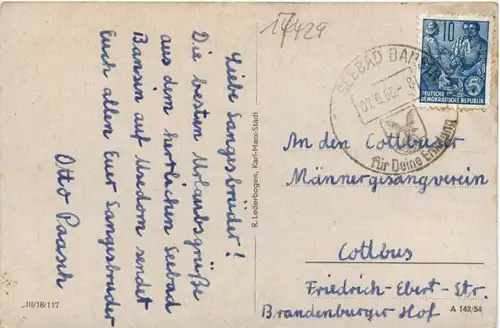 17429
Liebe Sangesbrüder!
Die besten Urlaubsgrüße
aus dem herrlichen Seebad
Bansin auf Usedom sendet
Euch allen Euer Sangesbruder
Otto Paasch
III/18/117
R. Lederbogen, Karl-Marx-Stadt
10
DEUTSCHE
DEMOKRATISCHE REPUBLIK
SEEBAD BANSIN
für Deine Erholung
An den Cottbuser
Männergesangverein
Cottbus
Friedrich-Ebert-Str.
Brandenburger Hof
A 142/54